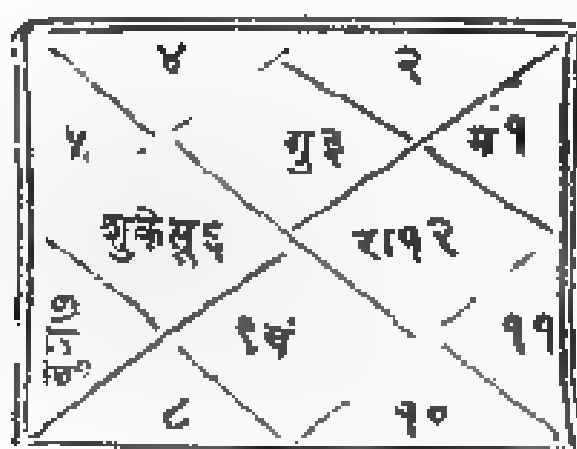 ४ २
५ गु३ मं१
शुकेसू६ रा१२
९चं ११
८ १०